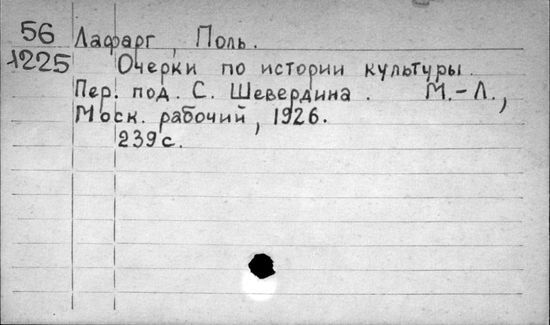 56 Лафарг, Поль.
1225 Очерки по истории культуры.
Пер. под. С. Шевердина. М.-Л.,
Моск. рабочий, 1926.
239с.